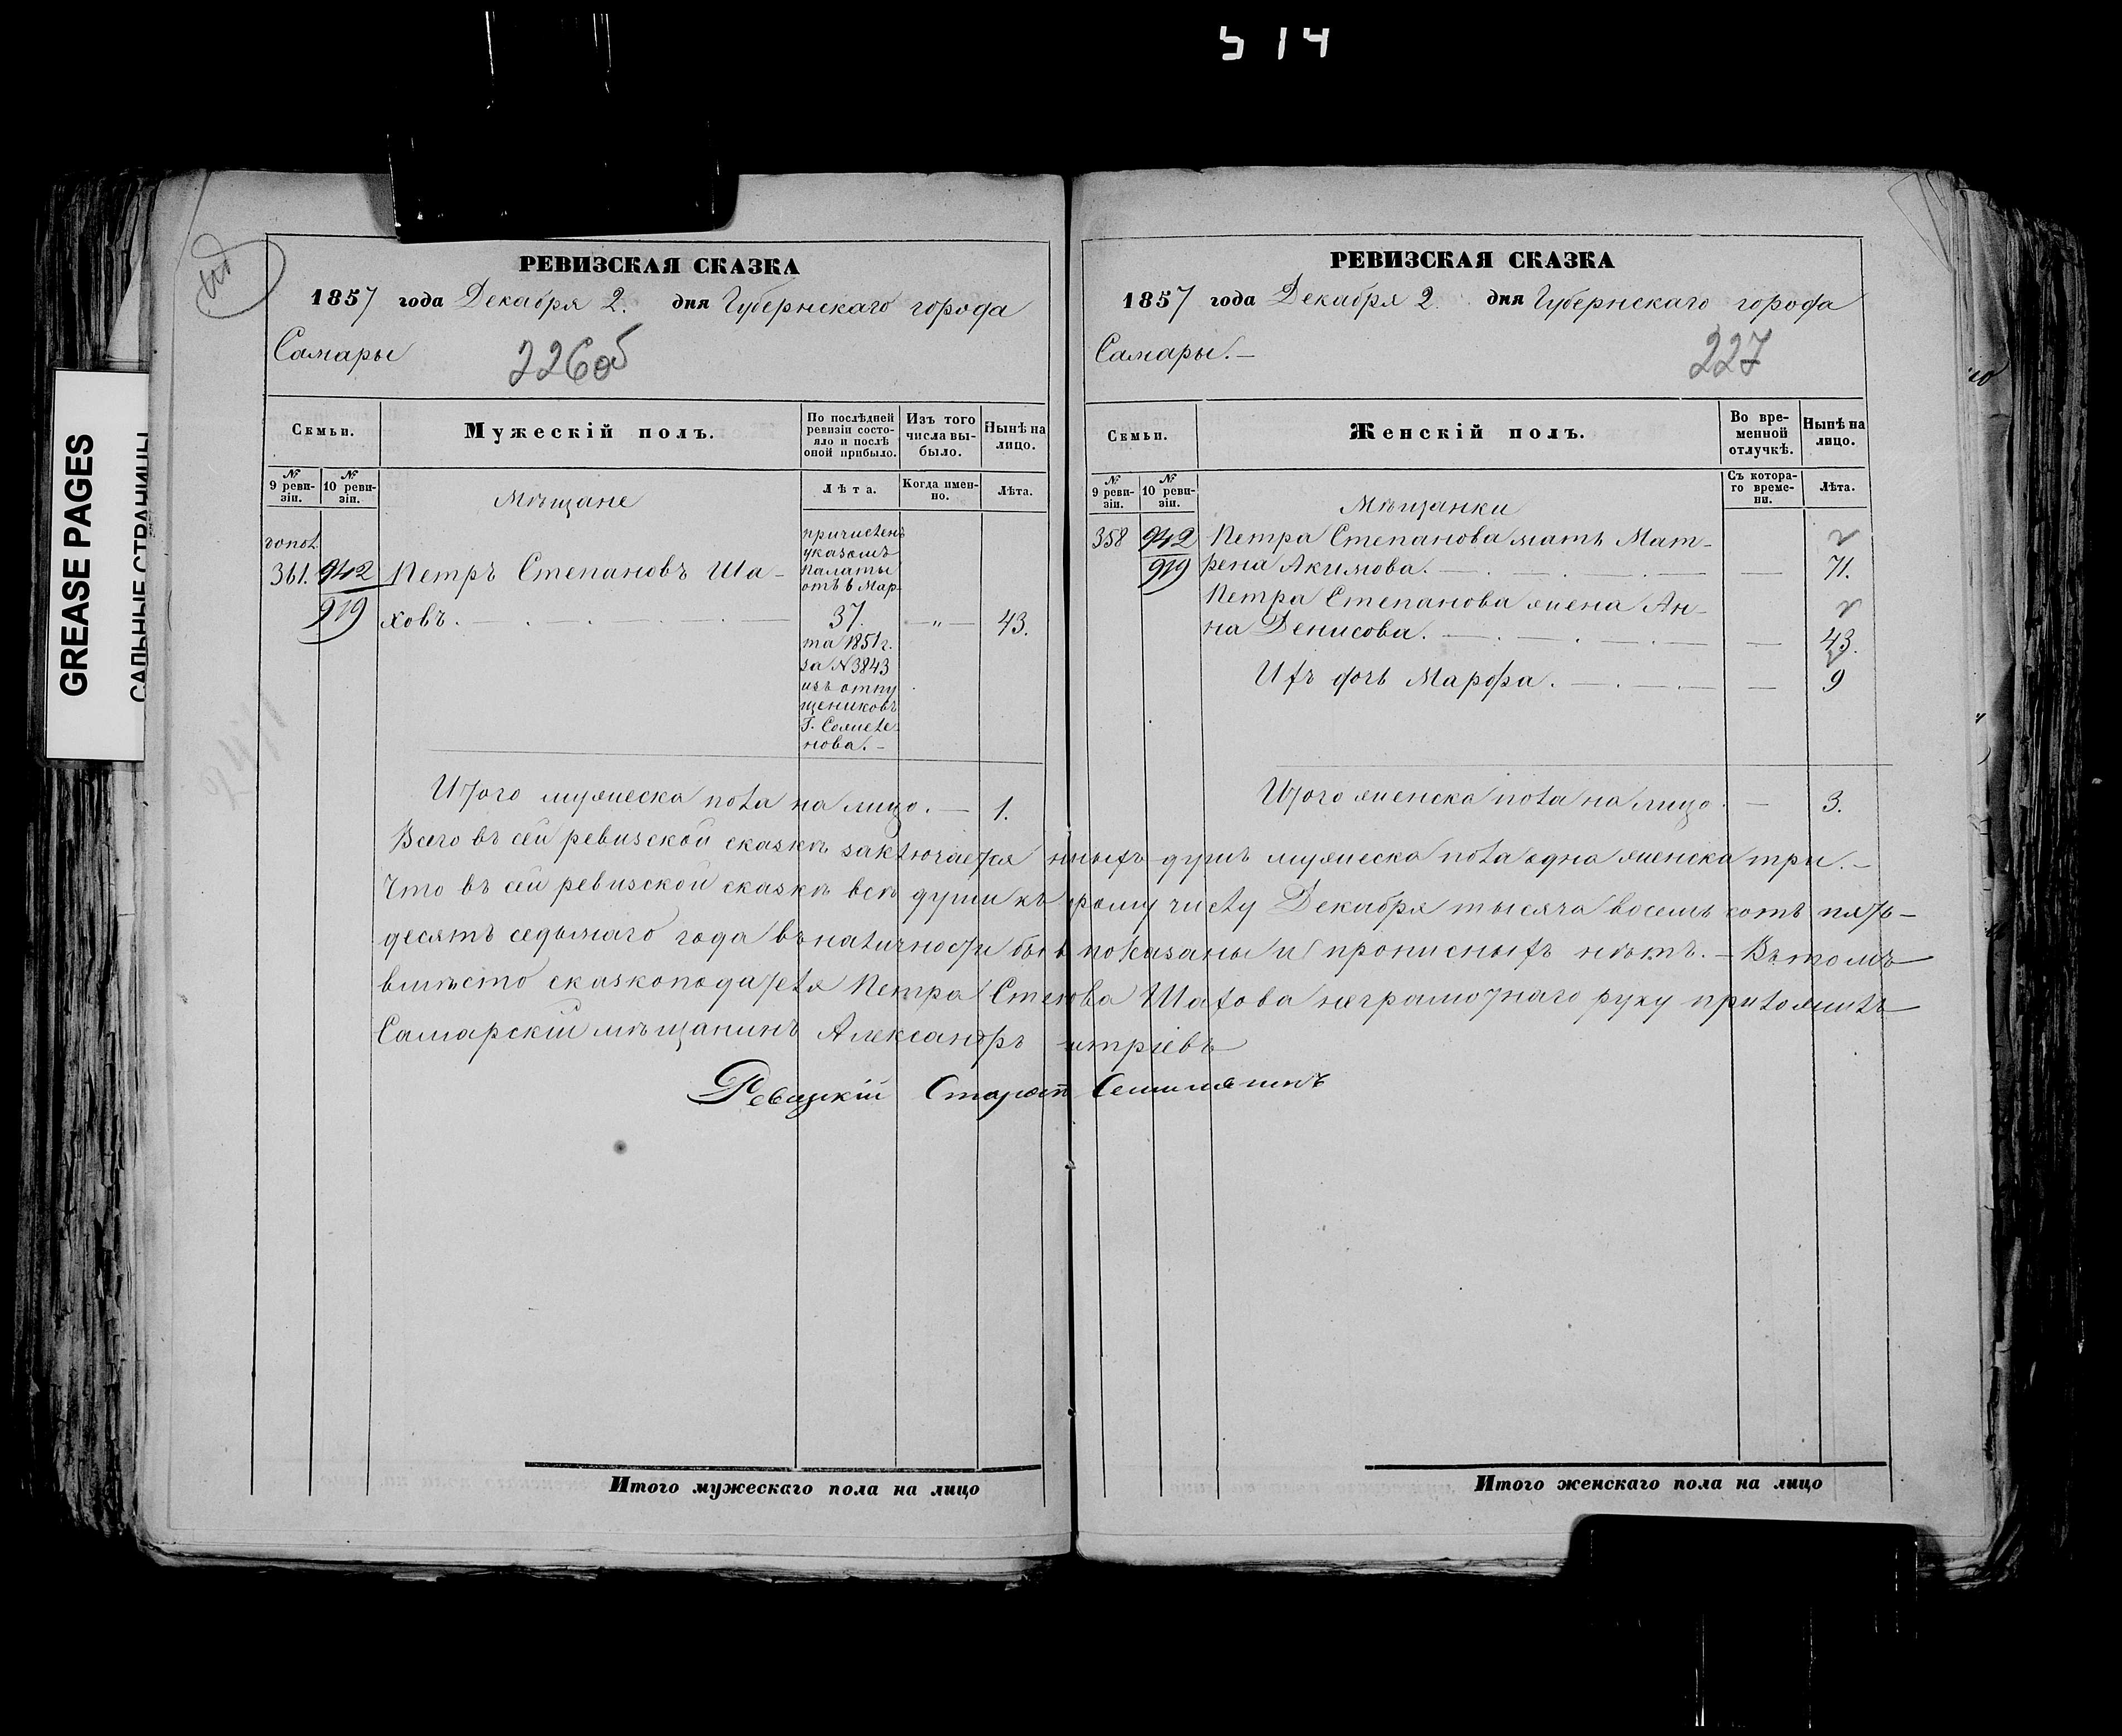 514
GREASE PAGES
САЛЬНЫЕ СТРАНИЦЫ
РЕВИЗСКАЯ СКАЗКА
1857 года Декабря 2. дня Губернскаго города
Самары
226об
Семьи.
Мужескій полъ.
По послѣдней ревизіи состояло и послѣ оной прибыло.
Изъ того числа выбыло.
Нынѣ на лицо.
№ 9 ревизіи.
№ 10 ревизіи.
Мѣщане
Лѣта.
Когда именно.
Лѣта.
допол.
361. 942 Петръ Степановъ Ша-
919 ховъ. 37. — „ — 43.
причисленъ
указомъ
палаты
отъ 6 Мар-
та 1851 г.
за N 3843
изъ отпу
щениковъ
Г.
нова. –
Итого мужеска пола на лицо. — 1.
РЕВИЗСКАЯ СКАЗКА
1857 года Декабря 2. дня Губернскаго города
Самары. –
227
Семьи.
Женскій полъ.
Во временной отлучкѣ.
Нынѣ на лицо.
№ 9 ревизіи.
№ 10 ревизіи.
Мѣщанки
Съ котораго времени.
Лѣта.
358 942 Петра Степанова мать Мат-
919 рена Акимова. — 71.
Петра Степанова жена Ан-
на Денисова. — 43.
Ихъ дочь Марфа. — 9
Итого женска пола на лицо. — 3.
Всего въ сей ревизской сказкѣ заключается душъ мужеска пола одна женска три. –
Что въ сей ревизской сказкѣ всѣ души къ число Декабря тысяча восемь сотъ пять-
десятъ седьмаго года въ наличности показаны и прописныхъ нѣтъ. – Въ томъ
вмѣсто сказкоподателя Петра Шахова неграмотнаго руку приложилъ
Самарскій мѣщанинъ Александръ
Староста
Итого мужескаго пола на лицо
Итого женскаго пола на лицо